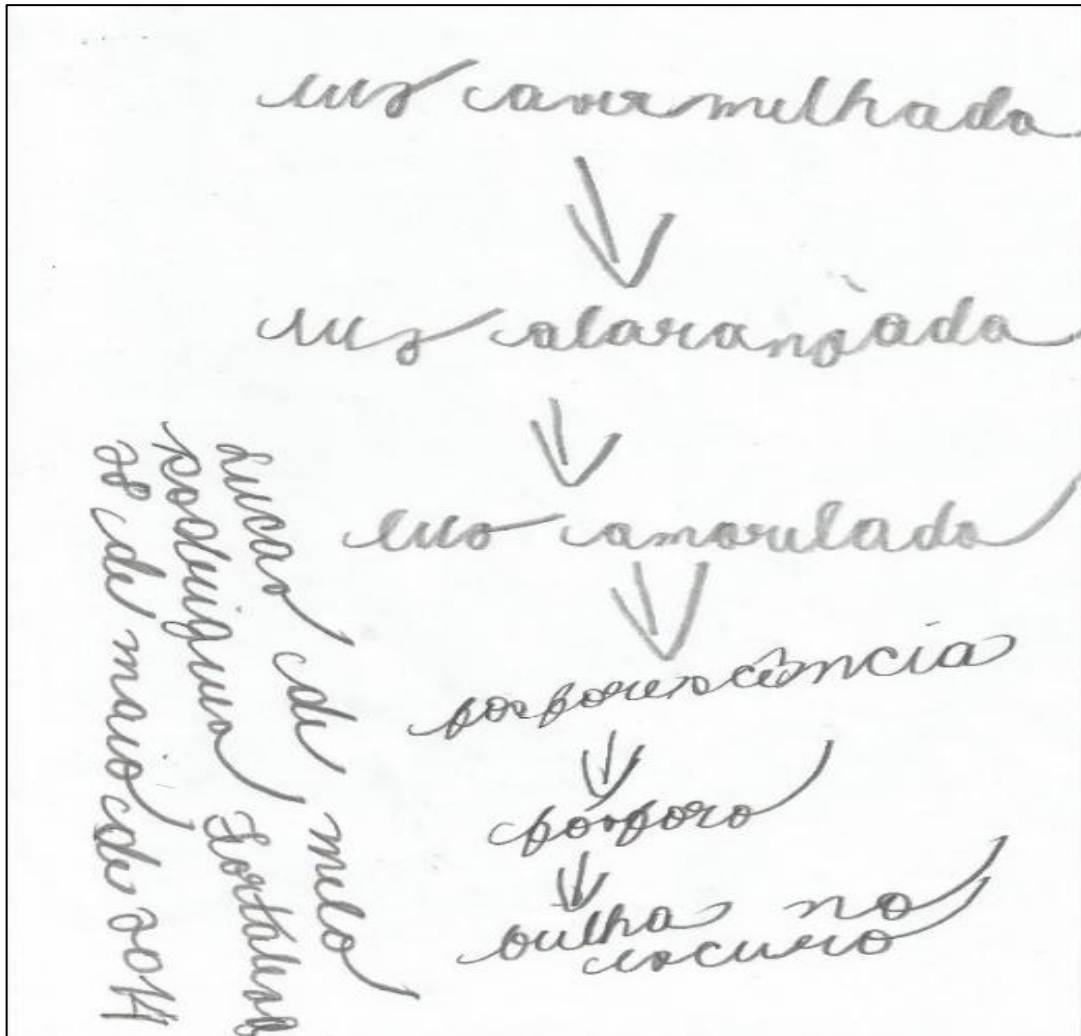 luz avermelhada
luz alaranjada
luz amarelada
fosforescência
fósforo
brilha no
escuro
Lucas de melo
Rodrigues Fortaleza
28 de maio de 2014